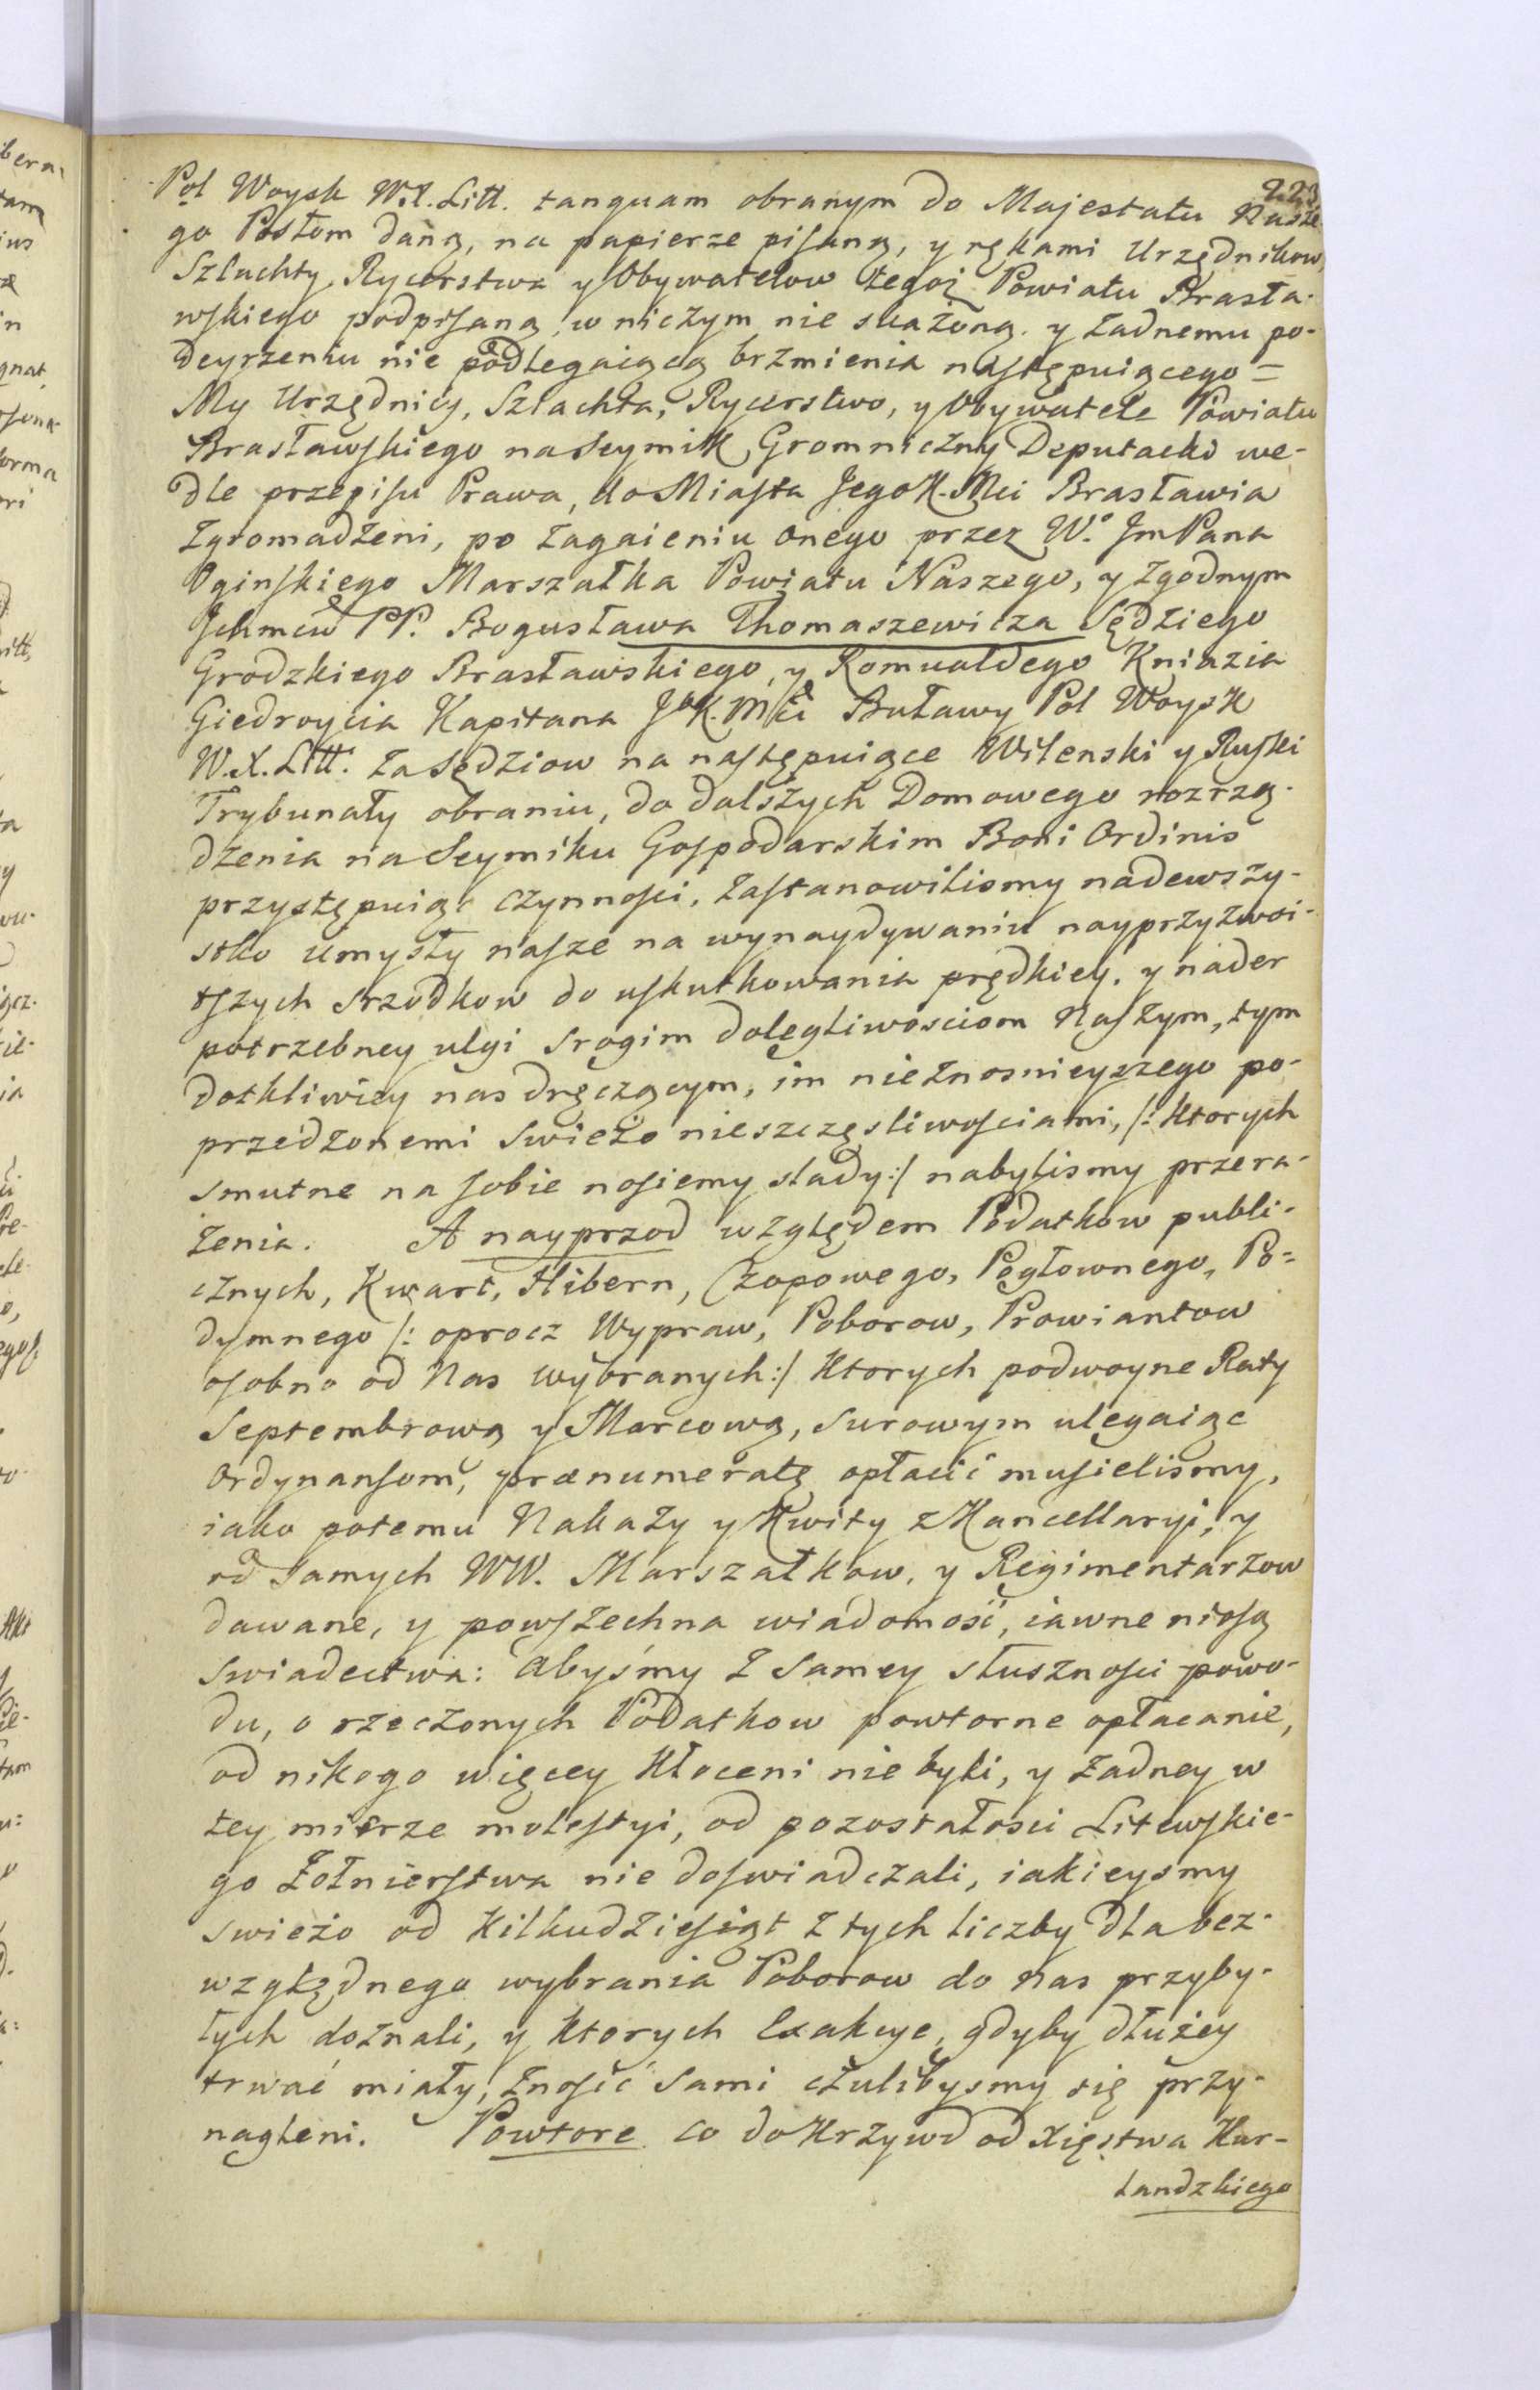 223
Pol Woysk W.X.Litt. tanquam obranym do Majestatu Nasze-
go Posłom daną, na papierze pisaną, y rękami Urzędnikow,
Szlachty, Rycerstwa y Obywatelow tegoż Powiatu Brasła-
wskiego podpisaną, w niczym nie skażoną y żadnemu po-
deyrzeniu nie podlegaiącą brzmienia następuiącego =
My Urzędnicy, Szlachta, Rycerstwo, y Obywatele Powiatu
Brasławskiego na Seymik Gromniczny Deputacki we-
dle przepisu Prawa, do Miasta Jego K. Mci Brasławia
zgromadzeni, po zagaieniu onego przez W.º Jm Pana
Oginskiego Marszałka Powiatu Naszego, y zgodnym
Jchmciw PP. Bogusława Thomaszewicza Sędziego
Grodzkiego Brasławskiego, y Romualdego Kniazia
Giedroycia Kapitana JºK. Mci Buławy Pol Woysk
W.X.Litt. za Sędziow na następuiące Wilenski y Ruski
Trybunały obraniu, do dalszych Domowego rozrzą-
dzenia na Seymiku Gospodarskim Boni Ordinis
przystępuiąc czynnosci, zastanowilismy nadewszy-
stko umysły nasze na wynaydywaniu nayprzyzwoi-
tszych srzodkow do uskutkowania prędkiey, y nader
potrzebney ulgi srogim dolegliwosciom Naszym, tym
dotkliwiey nas dręczącym, im nieznosnieyszego po-
przedzonemi swieżo nieszczęsliwosciami, /: ktorych
smutne na sobie nosiemy slady :/ nabylismy przera-
żenia. A nayprzod względem Podatkow publi-
cznych, Kwart, Hibern, Czopowego, Pogłownego, Po=
dymnego /: oprocz Wypraw, Poborow, Prowiantow
osobno od Nas wybranych :/ ktorych podwoyne Raty
Septembrową y Marcową, surowym ulegaiąc
Ordynansom, prænumeratę opłacić musielismy,
iako potemu Nakazy y Kwity z Kancellaryi, y
od samych WW. Marszałkow, y Regimentarzow
dawane, y powszechna wiadomość, iawne niosą
swiadectwa: Abyśmy z samey słusznosci powo-
du, o rzeczonych Podatkow powtorne opłacanie,
od nikogo więcey kłoceni nie byli, y żadney w
tey mierze molestyi, od pozostałosci Litewskie-
go Żołnierstwa nie doswiadczali, iakieysmy
swieżo od kilkudziesiąt z tych liczby dla bez-
względnego wybrania Poborow do nas przyby-
łych doznali, y ktorych Exakcye, gdyby dłużey
trwać miały, znosić sami czulibysmy się przy-
nagleni. Powtore co do krzywd od Xięstwa Kur-
landzkiego